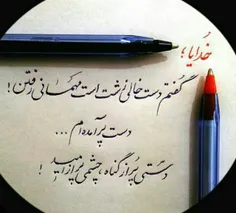 خدایا ؛
گفتم دست خالی زشت است مهمانی رفتن !
دست پر آمده ام ...
دستی پر از گناه ، چشمی پر از امید !